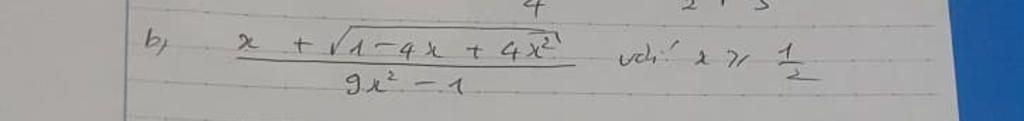 b, \frac{x + \sqrt{1-4x + 4x^2}}{9x^2 - 1} với x ≥ \frac{1}{2}